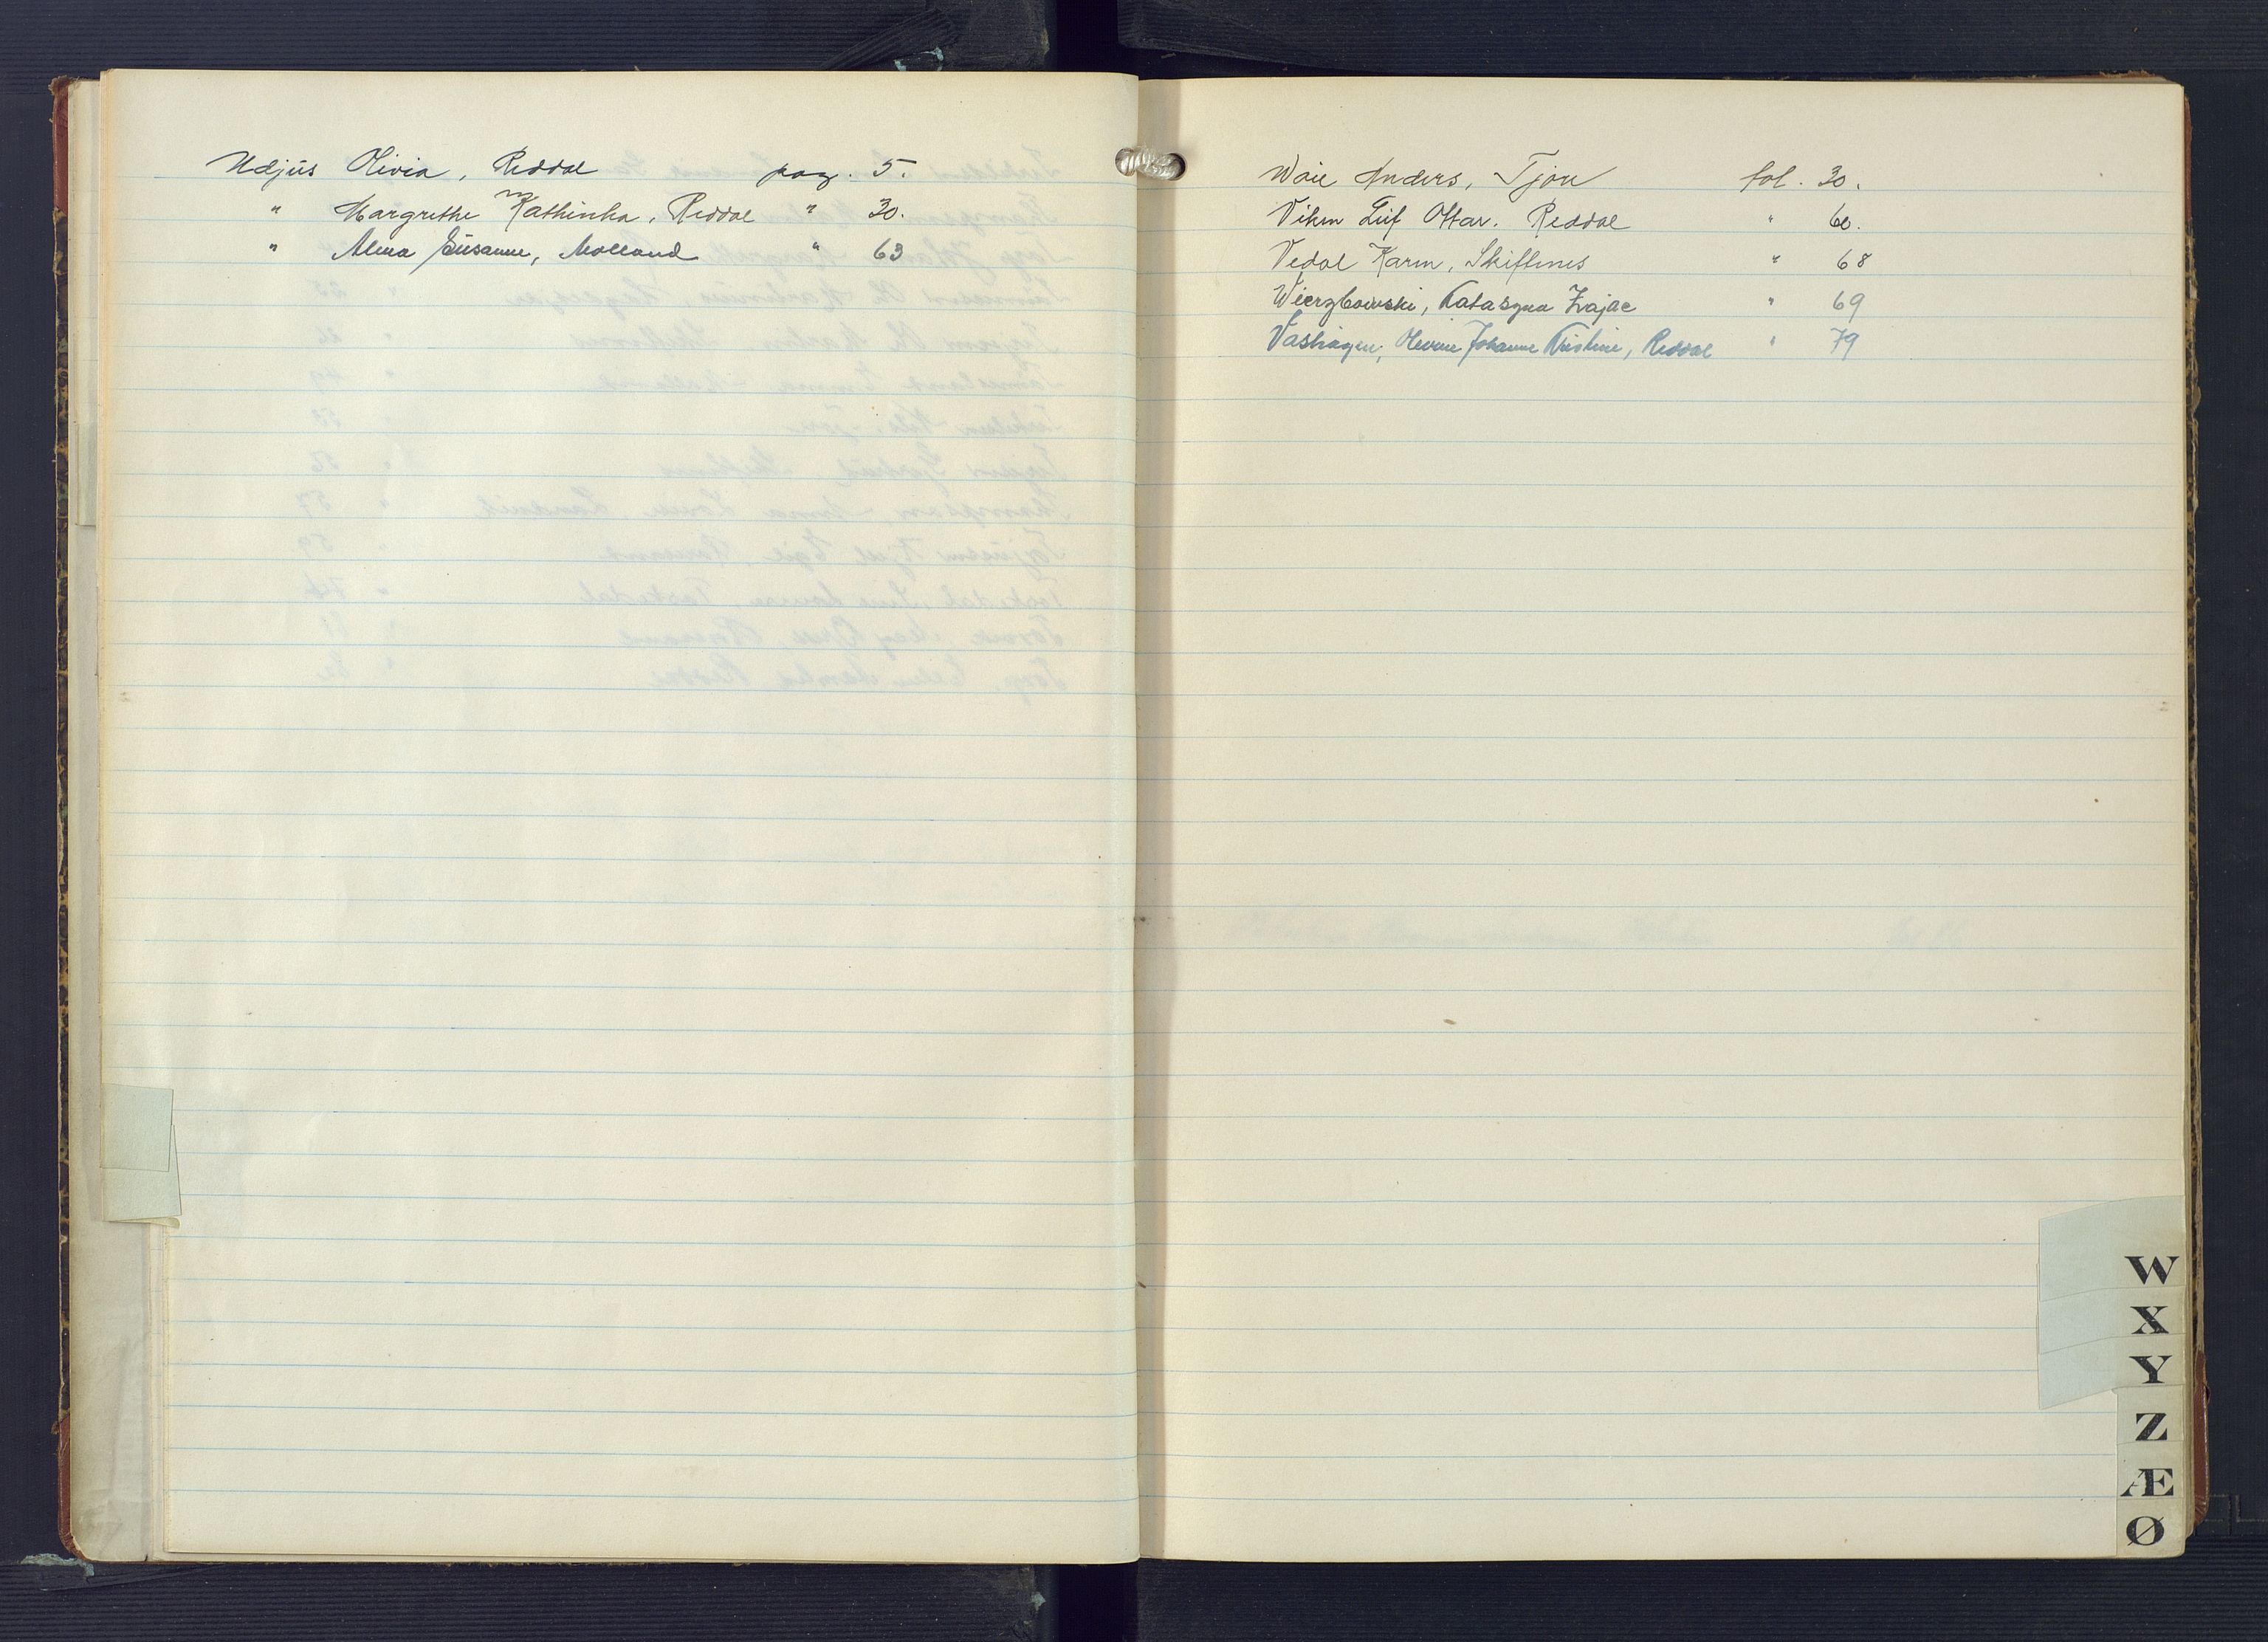 Udjus Olivia, Reddal pag. 5.
" Margrethe Kathinka, Reddal " 30.
" Alma Susanne, Molland " 63
Waie Anders, Tjøre fol. 30.
Viken Leif Ottar. Reddal " 60.
Vedal Karin, Skiftenes " 68
Wierzbowski, Kataszyna Zajac " 69
Vashagen, Olevine Johanne Kristine, Reddal " 79
W
X
Y
Z
Æ
Ø